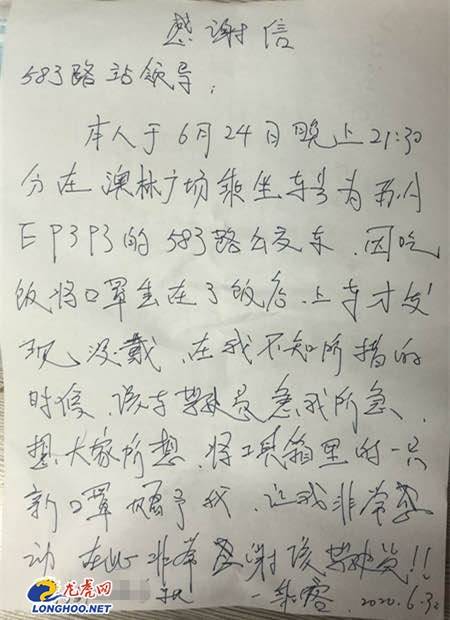 感谢信
583路站领导：
本人于6月24日晚上21:30
分在澳林广场乘坐车号为苏A
EP3P3的583路公交车，因吃
饭将口罩丢在了饭店，上车才发
现没戴，在我不知所措的
时候，该车驾驶员急我所急、
想大家所想，将工具箱里的一只
新口罩赠予我，让我非常感
动 在此非常感谢该驾驶员!!
一乘客 2020.6.30
龙虎网
LONGHOO.NET